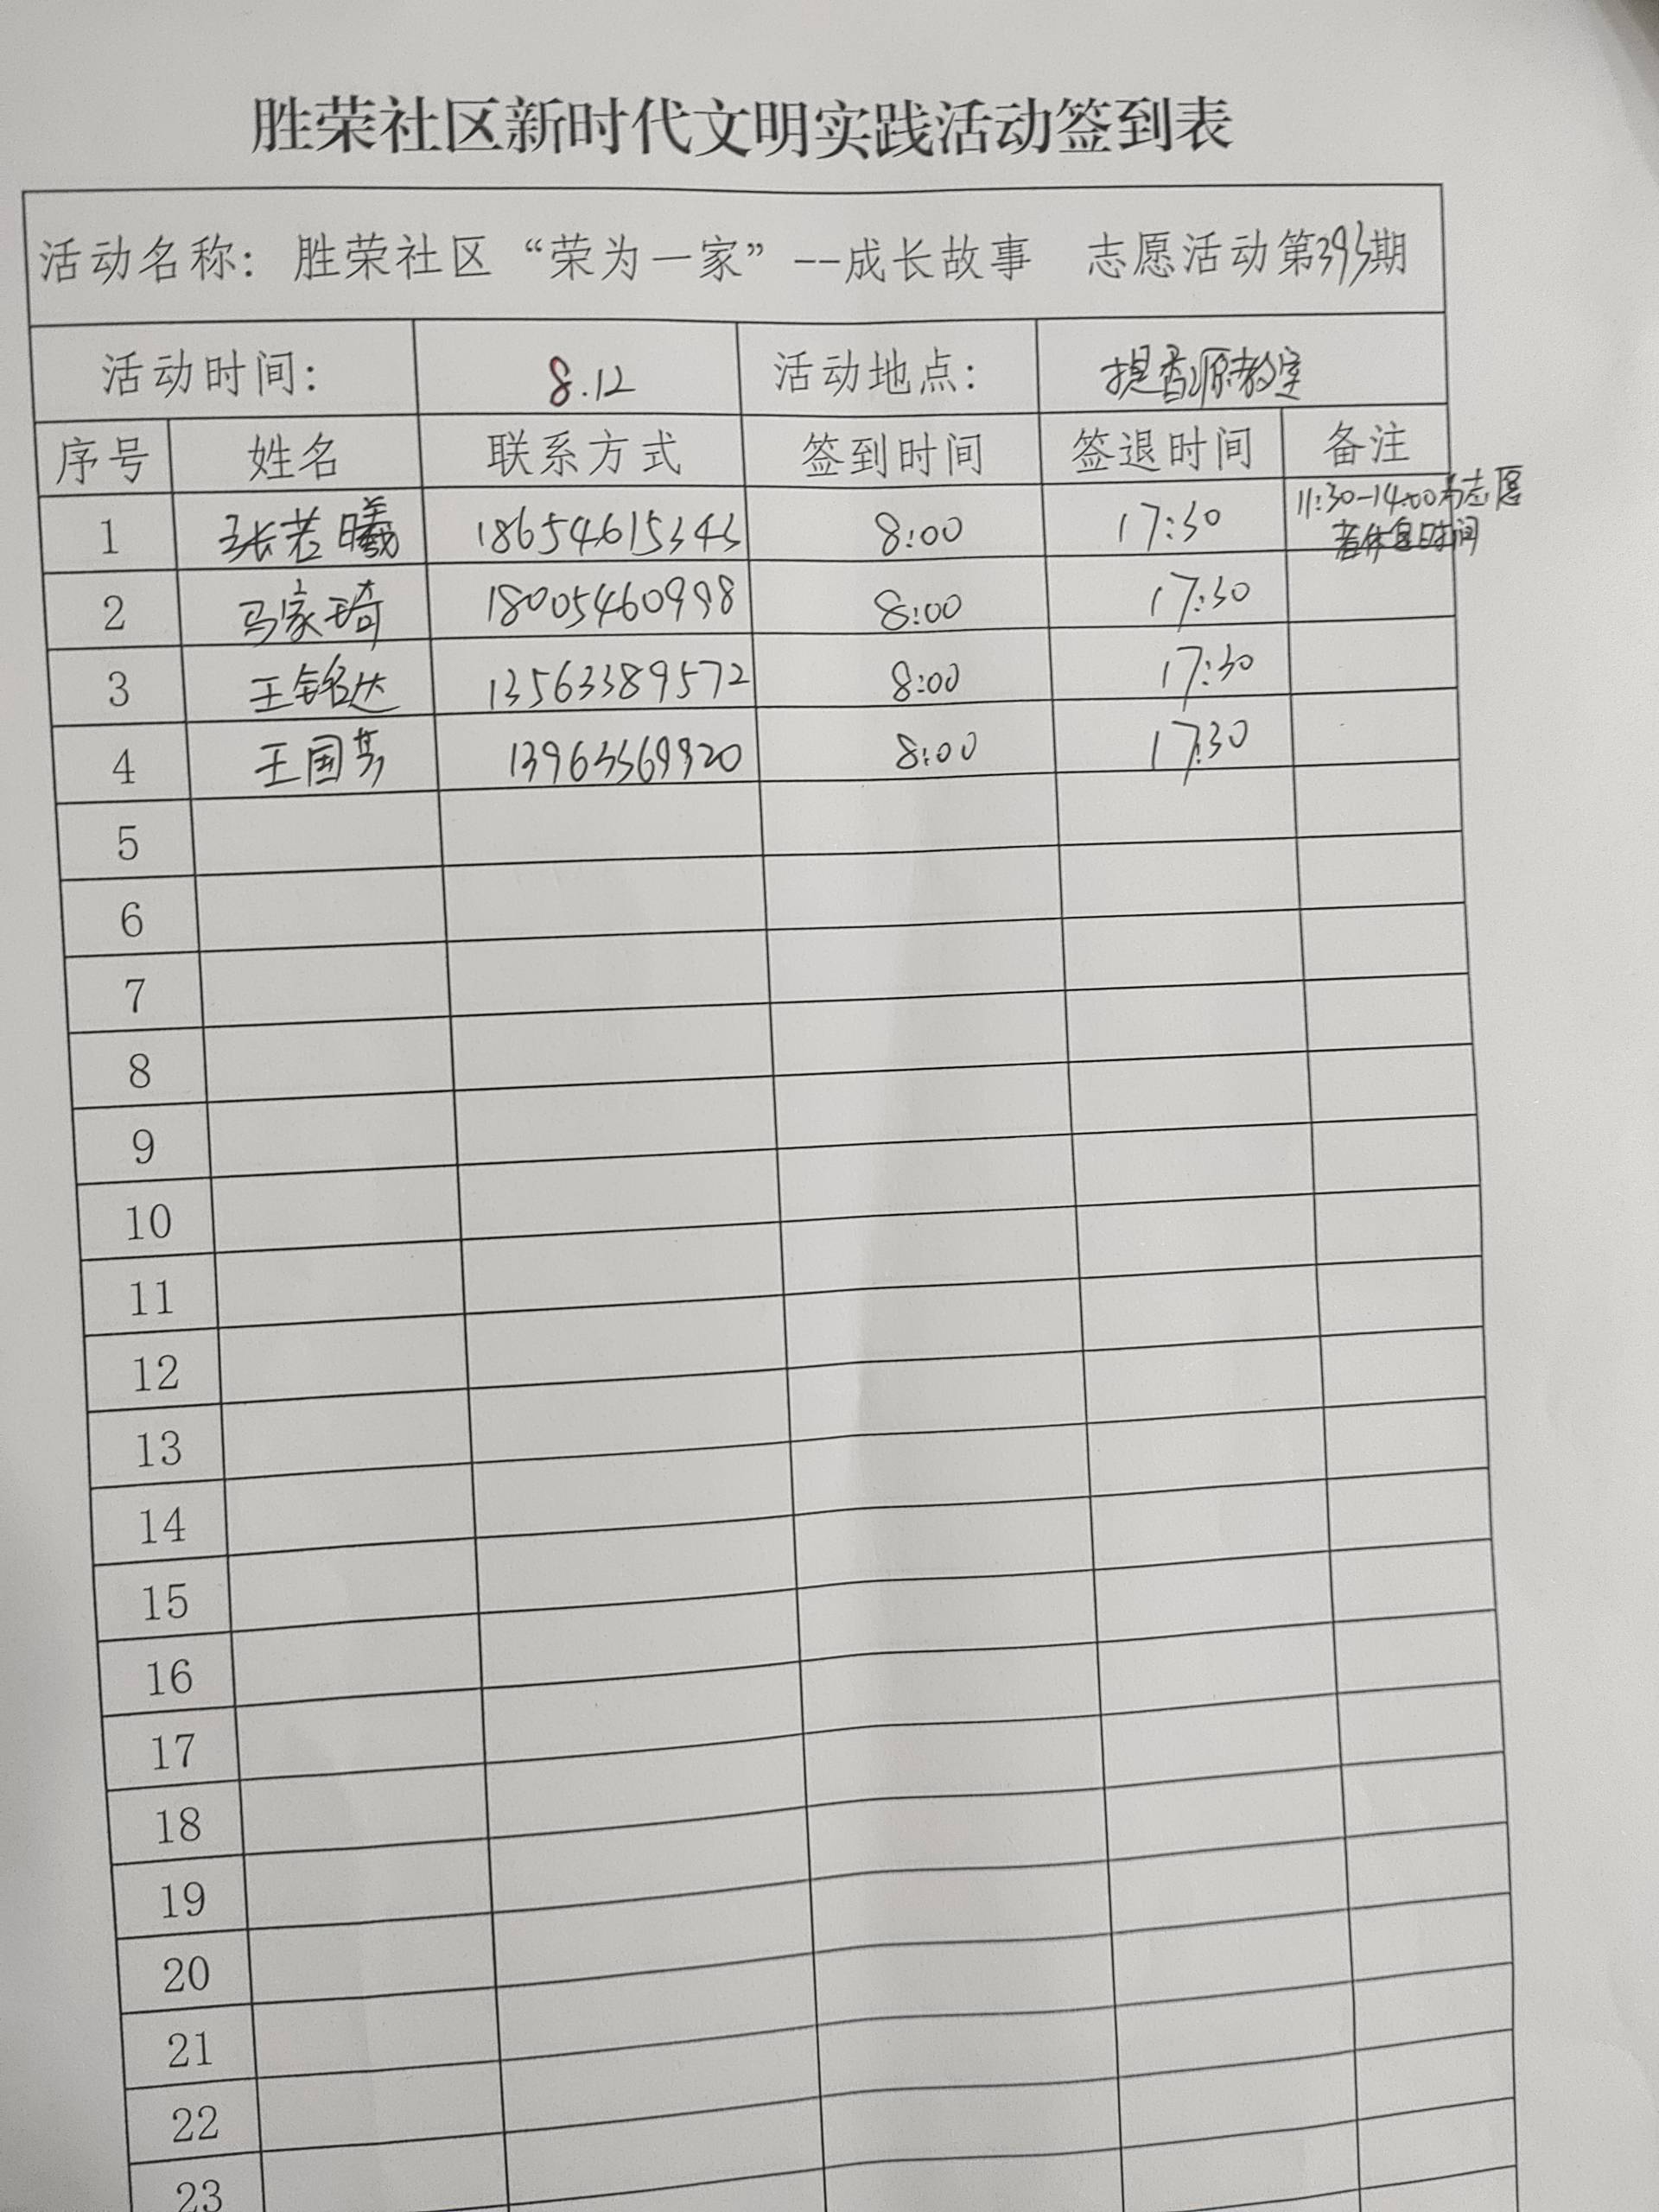 胜荣社区新时代文明实践活动签到表
活动名称：胜荣社区“荣为一家”--成长故事 志愿活动第393期
活动时间： 8.12 活动地点： 提香源教室
序号 姓名 联系方式 签到时间 签退时间 备注
1 张若曦 18654615343 8:00 17:30 11:30-14:00为志愿
者休息时间
2 马家琦 18005460998 8:00 17:30
3 王铭达 13563389572 8:00 17:30
4 王国芳 13963369920 8:00 17:30
5
6
7
8
9
10
11
12
13
14
15
16
17
18
19
20
21
22
23